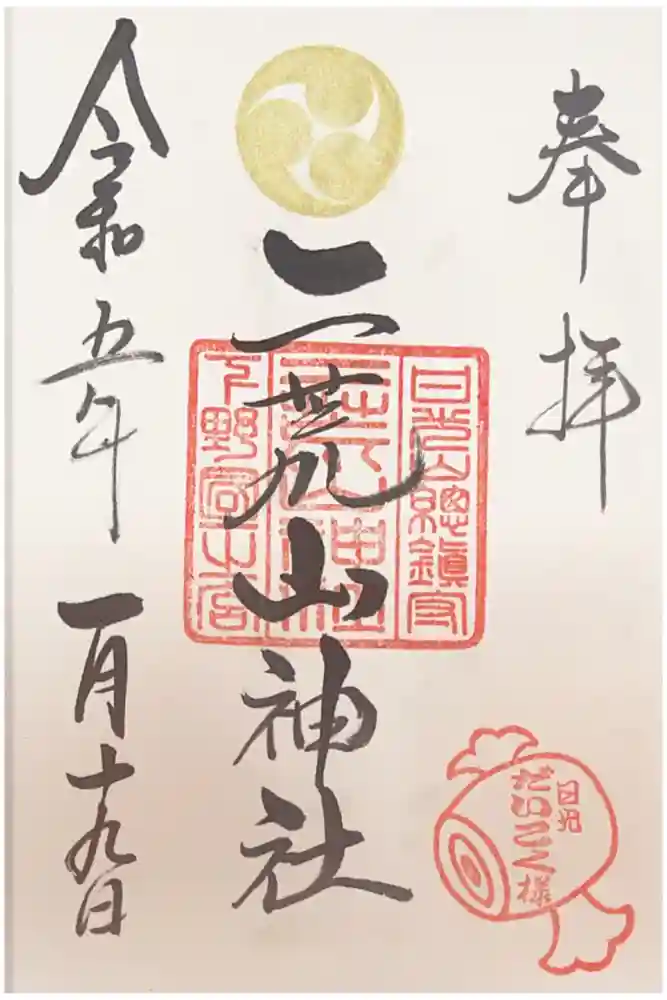 奉拝
日光山總鎮守
二荒山神社
下野國一之宮
令和五年 一月十九日
日光
だいこく様